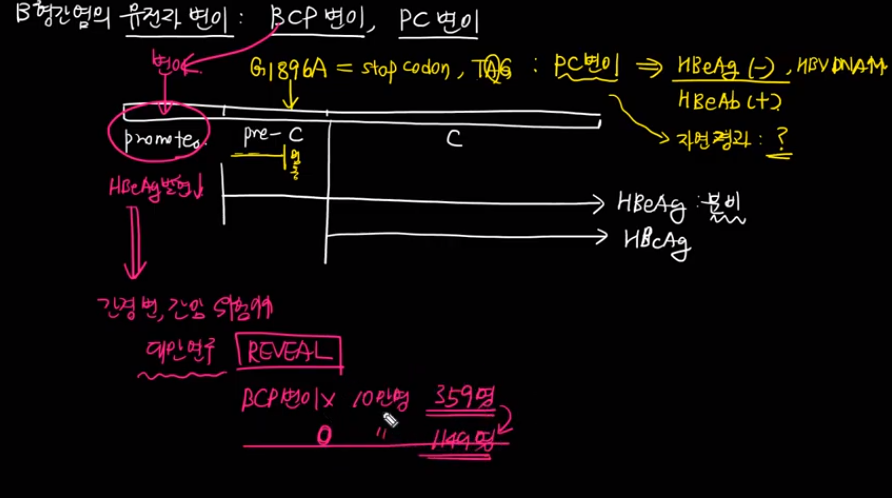 B형간염의 유전자 변이 : BCP 변이, PC 변이
변이
G1896A = stop codon, TAG : PC변이 ⇒ HBeAg (-), HBV DNA↑↑
HBeAb (+)
자연경과 : ?
promoter
pre-C
C
멈춤
HBeAg발현↓
HBeAg : 분비
HBcAg
간경변, 간암 위험↑↑
대만연구 REVEAL
BCP변이 x 10만명 359명
O 〃 1149명